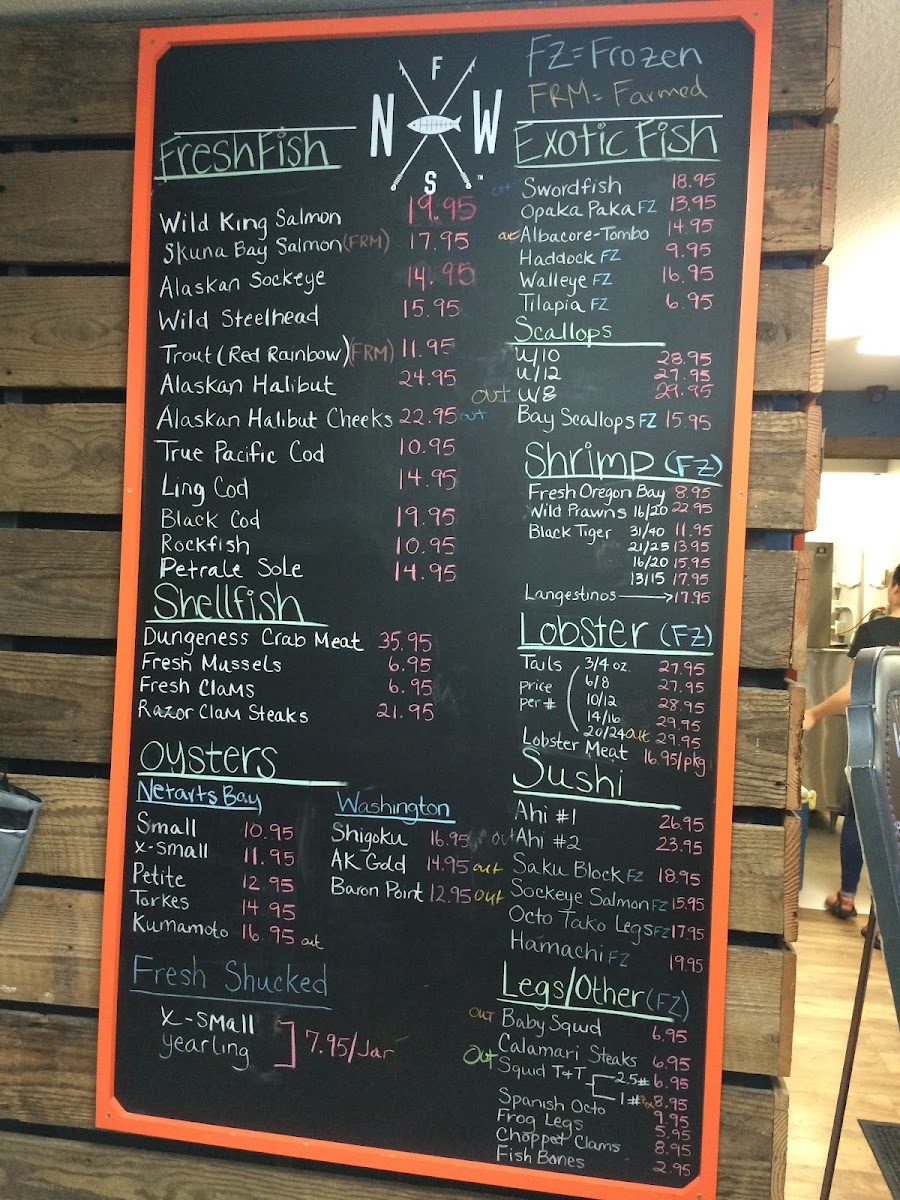 FZ=Frozen
FRM= Farmed
F
N W
S
TM
Fresh Fish
Wild King Salmon 19.95
Skuna Bay Salmon (FRM) 17.95
Alaskan Sockeye 14.95
Wild Steelhead 15.95
Trout (Red Rainbow) (FRM) 11.95
Alaskan Halibut 24.95
Alaskan Halibut Cheeks 22.95 out
True Pacific Cod 10.95
Ling Cod 14.95
Black Cod 19.95
Rockfish 10.95
Petrale Sole 14.95
Shellfish
Dungeness Crab Meat 35.95
Fresh Mussels 6.95
Fresh Clams 6.95
Razor Clam Steaks 21.95
Oysters
Netarts Bay
Small 10.95
X-small 11.95
Petite 12.95
Torkes 14.95
Kumamoto 16.95 out
Washington
Shigoku 16.95 out
AK Gold 14.95 out
Baron Point 12.95 out
Fresh Shucked
X-small
yearling
7.95/Jar
Exotic Fish
out Swordfish 18.95
Opaka Paka FZ 13.95
out Albacore-Tombo 14.95
Haddock FZ 9.95
Walleye FZ 16.95
Tilapia FZ 6.95
Scallops
U/10 28.95
U/12 27.95
out U/8 29.95
Bay Scallops FZ 15.95
Shrimp (FZ)
Fresh Oregon Bay 8.95
Wild Prawns 16/20 22.95
Black Tiger 31/40 11.95
21/25 13.95
16/20 15.95
13/15 17.95
Langestinos 17.95
Lobster (FZ)
Tails 3/4 oz. 27.95
price 6/8 27.95
per # 10/12 28.95
14/16 29.95
20/24 out 29.95
Lobster Meat 16.95/pkg
Sushi
Ahi #1 26.95
Ahi #2 23.95
Saku Block FZ 18.95
Sockeye Salmon FZ 15.95
Octo Tako Legs FZ 17.95
Hamachi FZ 19.95
Legs/Other (FZ)
out Baby Squid 6.95
Calamari Steaks 6.95
Out Squid T+T 2.5# 6.95
1# 8.95
Spanish Octo 9.95
Frog Legs 5.95
Choppet Clams 8.95
Fish Bones 2.95